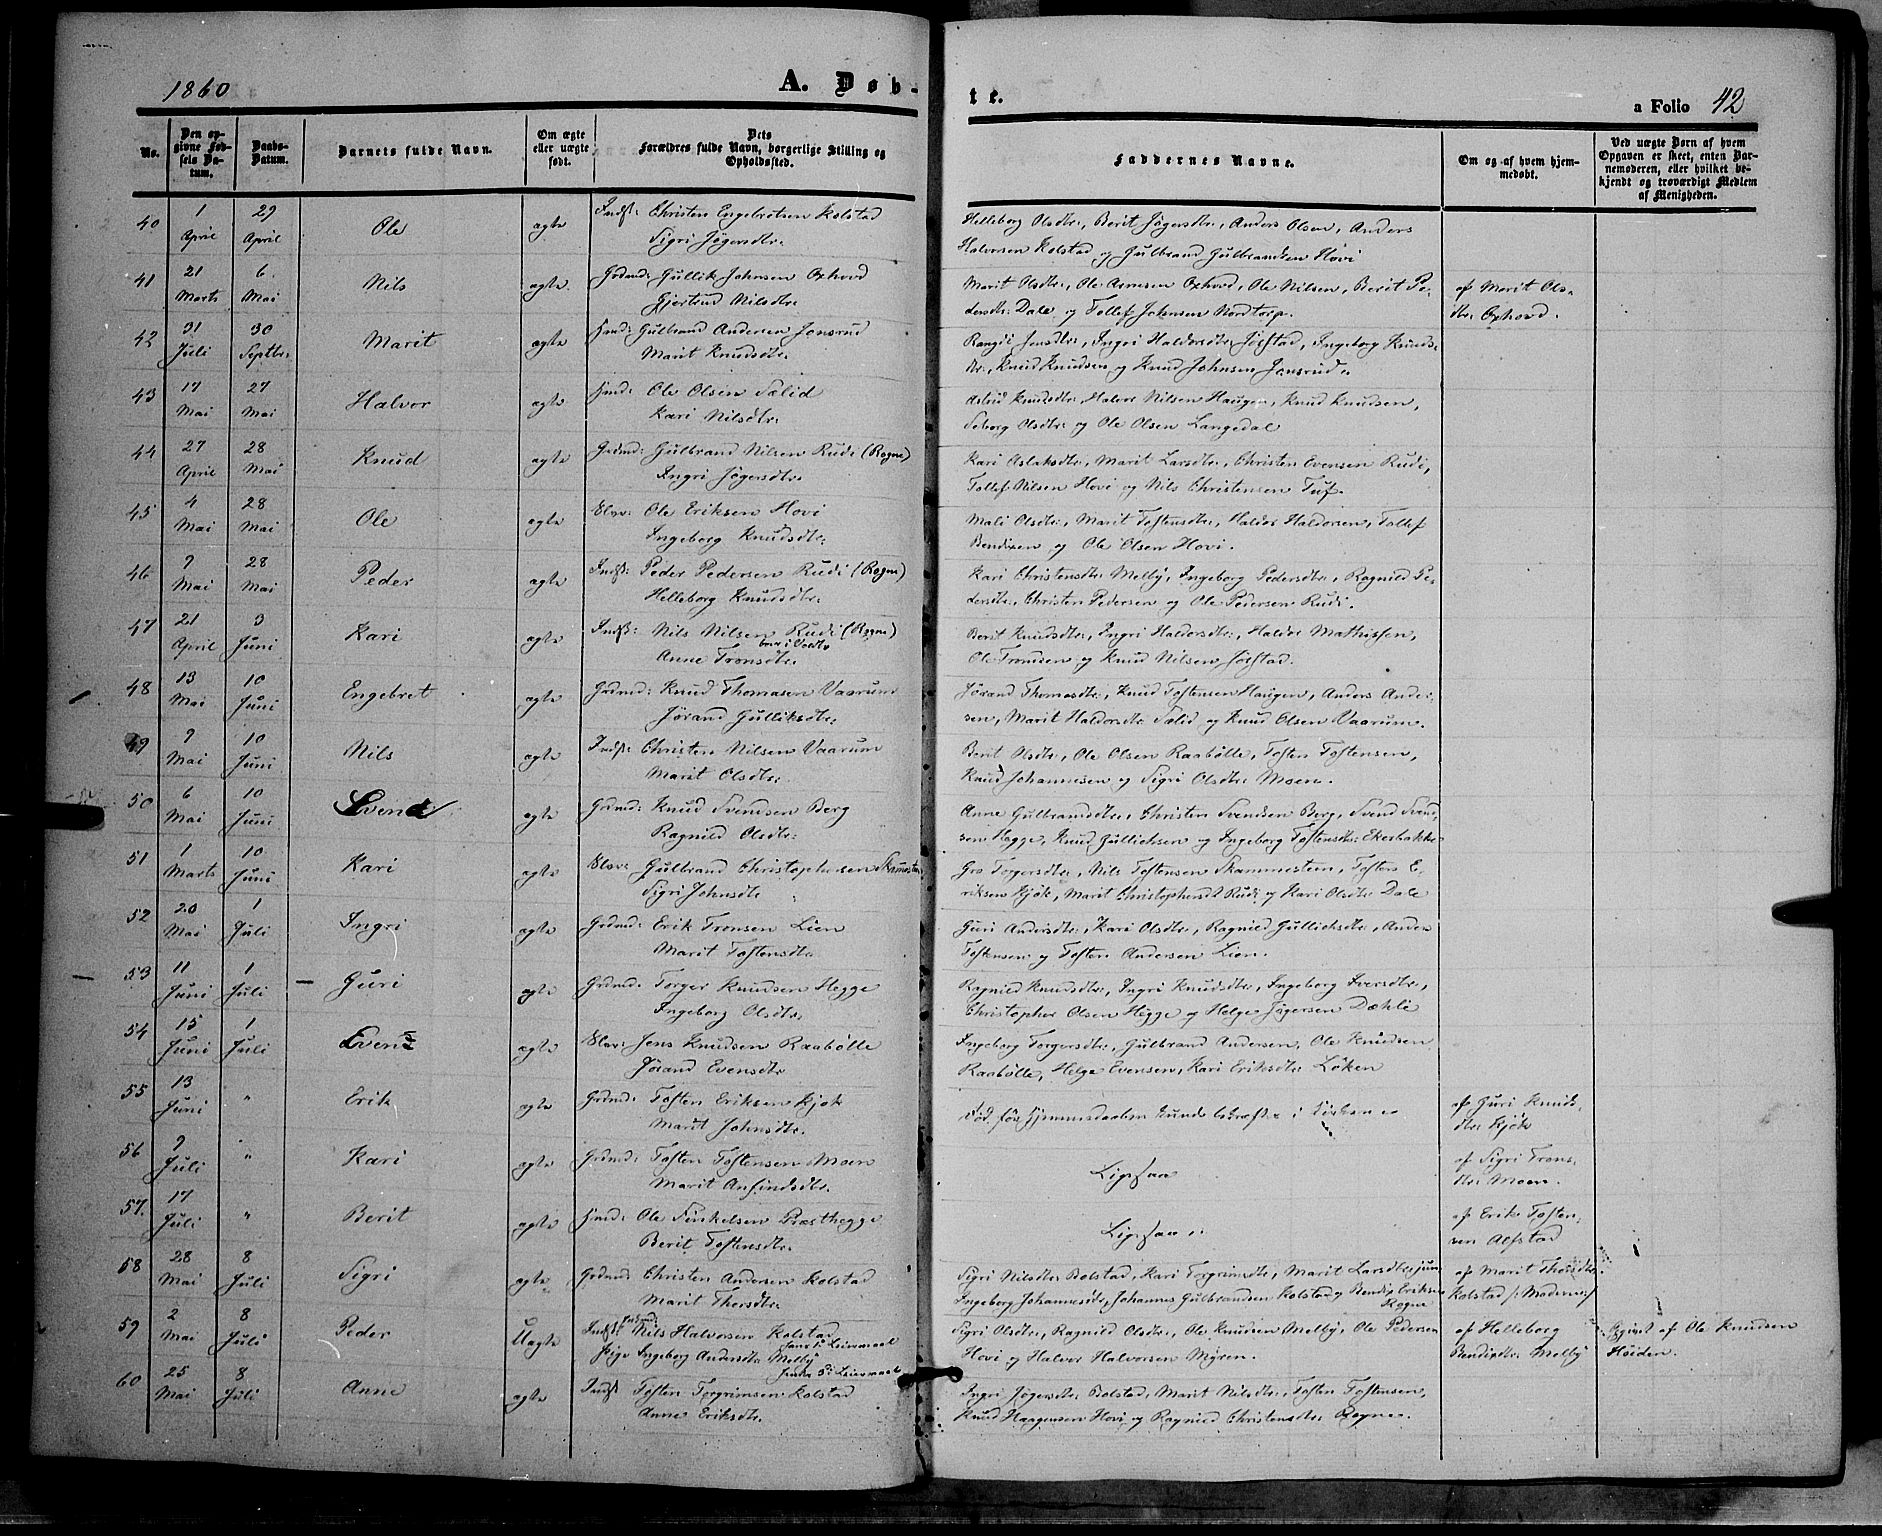 1860
A. Døb-
te.
a Folio 42
No.
Den op-
givne Fød-
sels Da-
tum.
Daabs-
Datum.
Barnets fulde Navn.
Om ægte
eller uægte
født.
Dets
Forældres fulde Navn, borgerlige Stilling og
Opholdssted.
Faddernes Navne.
Om og af hvem hjem-
medøbt.
Ved uægte Børn af hvem
Opgaven er skeet, enten Bar-
nemoderen, eller hvilket be-
kjendt og troværdigt Medlem
af Menigheden.
40 1 April 29 April Ole ægte Indst: Christen Engebretsen Kolstad
Sigri Jøgersdtr:
Helleborg Olsdtr:, Berit Jøgersdtr:, Anders Olsen, Anders
Halvorsen Kolstad og Gulbrand Gulbrandsen Hovi
41 21 Marts 6 Mai Nils ægte Grdmd: Gullik Johnsen Oxhovd
Gjertrud Nilsdtr:
Marit Olsdtr:, Ole Arnesen Oxhovd, Ole Nilsen, Berit Pe-
dersdtr: Dale og Tollef Johnsen Nordtorp.
af Marit Ols-
dtr: Oxhovd.
42 31 Juli 30 Septbr: Marit ægte Hmd: Gulbrand Andersen Jonsrud
Marit Knudsdtr:
Rangdi Jensdtr:, Ingri Haldorsdtr: Jøistad, Ingeborg Knuds-
dtr:, Knud Knudsen og Knud Johnsen Jonsrud.
43 17 Mai 27 Mai Halvor ægte Hmd: Ole Olsen Sælid
Kari Nilsdtr:
Astrid Knudsdtr:, Halvor Nilsen Haugen, Knud Knudsen,
Seborg Olsdtr: og Ole Olsen Langedal
44 27 April 28 Mai Knud ægte Grdmd: Gulbrand Nilsen Rudi (Rogne)
Ingri Jøgersdtr:
Kari Aslaksdtr:, Marit Larsdtr:, Christen Evensen Rudi,
Tollef Nilsen Hovi og Nils Christensen Tuf.
45 4 Mai 28 Mai Ole ægte Ole Eriksen Hovi
Ingeborg Knudsdtr:
Mali Olsdtr:, Marit Tostensdtr:, Haldor Haldorsen, Tollef
Bendixen og Ole Olsen Hovi.
46 7 Mai 28 Mai Peder ægte Indst: Peder Pedersen Rudi (Rogne)
Helleborg Knudsdtr:
Kari Christensdtr: Melby, Ingeborg Pedersdtr:, Ragnild Pe-
dersdtr:, Christen Pedersen og Ole Pedersen Rudi.
47 21 April 3 Juni Kari ægte Indst: Nils Nilsen Rudi (Rogne)
Anne Tronsdtr:
Berit Knudsdtr:, Ingri Haldorsdtr:, Haldor Mathissen,
Ole Tronsen og Knud Nilsen Jøistad.
48 13 Mai 10 Juni Engebret ægte Grdmd: Knud Thomasen Vaarum
Jørand Gulliksdtr:
Jørand Thomasdtr:, Knud Tostensen Haugen, Anders Ander-
sen, Marit Haldorsdtr: Sælid og Knud Olsen Vaarum.
49 7 Mai 10 Juni Nils ægte Indst: Christen Nilsen Vaarum
Marit Olsdtr:
Berit Olsdtr:, Ole Olsen Raabølle, Tosten Tostensen,
Knud Johannesen og Sigri Olsdtr: Moen.
50 6 Mai 10 Juni Svend ægte Grdmd: Knud Svendsen Berg
Ragnild Olsdtr:
Anne Gulbrandsdtr:, Christen Svendsen Berg, Svend Svend-
sen Hegge, Knud Gullichsen og Ingeborg Tostensdtr: Ekerbakke
51 1 Marts 10 Juni Kari ægte Gulbrand Christophersen Skamestein
Sigri Johnsdtr
Gro Torgersdtr:, Nils Tostensen Skammestein, Tosten E-
riksen Kjøk, Marit Christophersdtr Rudi og Kari Olsdtr: Dale
52 20 Mai 1 Juli Ingri ægte Grdmd: Erik Tronsen Lien
Marit Tostensdtr.
Guri Andersdtr:, Kari Olsdtr:, Ragnild Gullichsdtr:, Anders
Tostensen og Tosten Andersen Lien.
53 11 Juni 1 Juli Guri ægte Grdmd: Torger Knudsen Hegge
Ingeborg Olsdtr.
Ragnild Knudsdtr:, Ingri Knudsdtr:, Ingeborg Iversdtr:,
Christopher Olsen Hegge og Helge Jøgersen Dæhli
54 15 Juni 1 Juli Even ægte Jens Knudsen Raabølle
Jørand Evensdtr
Ingeborg Torgersdtr:, Gulbrand Andersen, Ole Knudsen
Raabølle, Helge Evensen, Kari Eriksdtr: Løken
55 13 Juni " Erik ægte Grdmd: Tosten Eriksen Kjøk
Marit Johnsdtr.
Død før Hjemmedaaben kunde bekræftes i Kirken
af Guri Knuds-
dtr: Kjøk
56 7 Juli " Kari ægte Grdmd: Tosten Tostensen Moen
Marit Anfindsdtr.
Ligesaa
af Sigri Trons-
dtr: Moen.
57. 17 Juli " Berit ægte Hmd: Ole Tinkelsen Præsthegge
Berit Tostensdtr.
Ligesaa
af Erik Tosten-
sen Alfstad
58 28 Mai 8 Juli Sigri ægte Grdmd Christen Andersen Kolstad
Marit Thorsdtr:
Sigri Nilsdtr: Bolstad, Kari Torgrimsdtr:, Marit Larsdtr: jun:
Ingeborg Johannesdtr:, Johannes Gulbrandsen Kolstad og Bendix Eriksen
Rogne
af Marit Thorsdtr:
Kolstad /: Moderen :/
59 2 Mai 8 Juli Peder Uægte Nils Halvorsen Kolstad
Pige Ingeborg Andersdtr: Melby
Sigri Olsdtr:, Ragnild Olsdtr:, Ole Knudsen Melby, Ole Pedersen
Hovi og Halvor Halvorsen Myren.
af Helleborg
Bendixdtr: Melby
Opgivet af Ole Knudsen
Høiden.
60 25 Mai 8 Juli Anne ægte Indst Tosten Torgrimsen Kolstad
Anne Eriksdtr.
Ingri Jøgersdtr: Bolstad, Marit Nilsdtr:, Tosten Tostensen,
Knud Haagensen Hovi og Ragnild Christensdtr: Rogne.